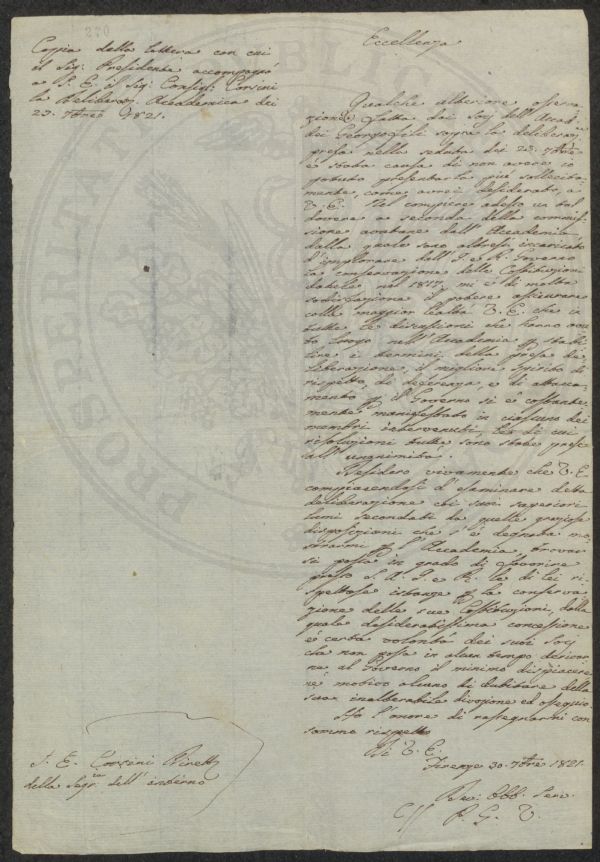 270
Copia della lettera con cui
il Sig: Presidente accompagnò
a S. E. il Sig: Consigl: Corsini
la Deliberaz. Accademica dei
23. 7bre 1821.
Eccellenza
Qualche ulteriore osserva
zione fatta dai Socj dell'Accad:
dei Georgofili sopra la deliberazne
presa nella seduta dei 23. 7bre
è stata causa di non avere io
potuto presentarla più sollecita
mente, come avrei desiderato, a
V. E. Nel compiere adesso un tal
dovere a seconda della commis
sione avutane dall'Accademia,
dalla quale sono altresì incaricato
d'implorare dall'I. e R. Governo
la conservazione delle Costituzioni
datele nel 1817, mi è di molta
sodisfazione il potere assicurare
colla maggior lealtà V. E. che in
tutte le discussioni che hanno avu
to luogo nell'Accademia p stabi
lire i termini della presa de
liberazione, il migliore spirito di
rispetto, di deferenza, e di attacca
mento p il Governo si è costante
mente manifestato in ciascuno dei
membri intervenuti, le di cui
risoluzioni tutte sono state prese
all'unanimità.
Desidero vivamente che V. E.
compiacendosi d'esaminare detta
deliberazione coi suoi superiori
lumi secondati da quelle graziose
disposizioni che s'è degnata mo
strarmi p l'Accademia, trovar
si possa in grado di favorire
presso S. A. I. e R. le di lei ri
spettose istanze p la conserva
zione delle sue Costituzioni, dalla
quale desiderabilissima concessione
è certa volontà dei suoi Socj
che non possa in alcun tempo derivar
ne al Governo il minimo dispiacere
nè motivo alcuno di dubitare della
sua inalterabile divozione ed ossequio.
Ho l'onore di rassegnarmi con
sommo rispetto
Di V. E.
Firenze 30. 7bre 1821.
Dev: Obb: Serv:
P. G. V.
S. E. Corsini Dirett
della Segr.ria dell'interno